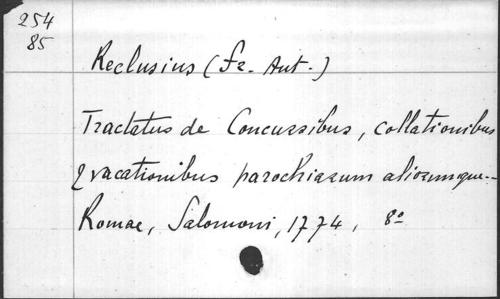 254
85
Reclusius (Fr. Ant.)
Tractatus de Concursibus, collationibus
& vacationibus parochiarum aliorumque
Romae, Salomoni, 1774, 8º